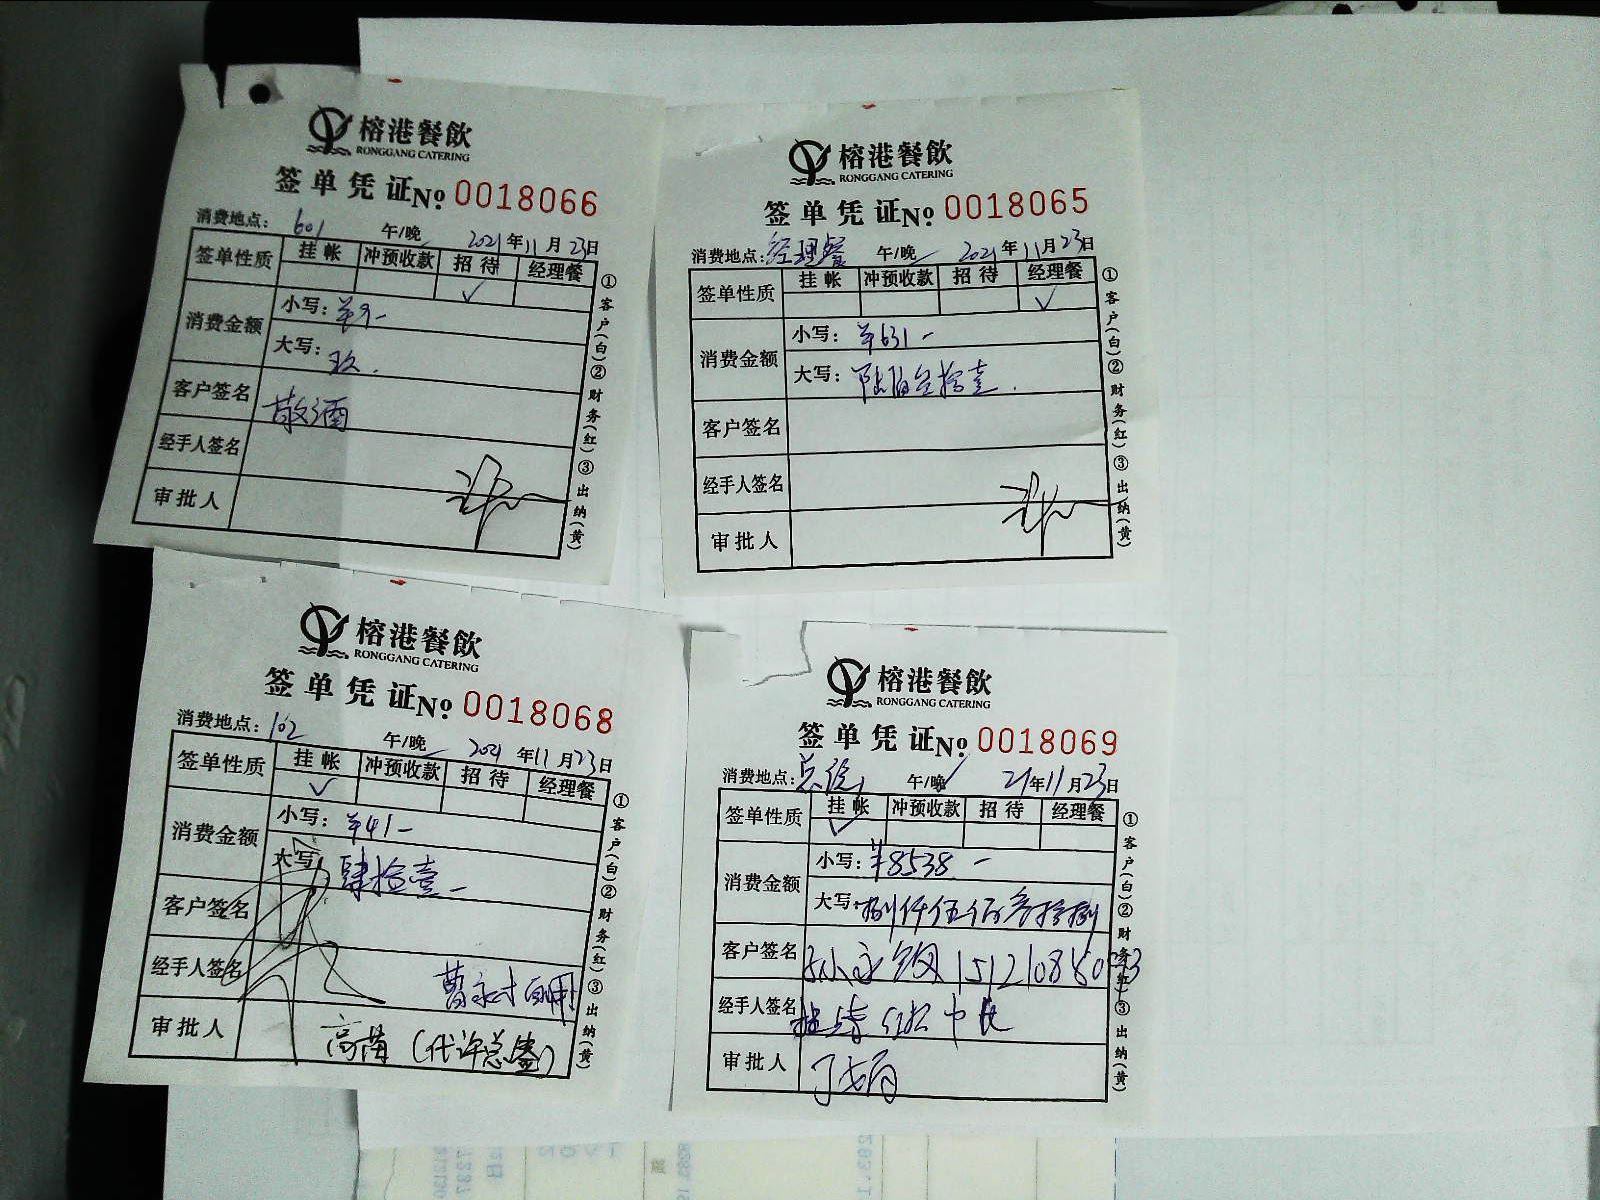 榕港餐飲
RONGGANG CATERING
签单凭证No 0018066
消费地点: 601 午/晚 2021年11月23日
签单性质 挂帐 冲预收款 招待 经理餐
✓
消费金额 小写: ¥9-
大写: 玖.
客户签名 敬酒
经手人签名
审批人
①客户(白)②财务(红)③出纳(黄)
榕港餐飲
RONGGANG CATERING
签单凭证No 0018065
消费地点: 经理餐 午/晚 2021年11月23日
签单性质 挂帐 冲预收款 招待 经理餐
✓
消费金额 小写: ¥631-
大写: 陆佰叁拾壹.
客户签名
经手人签名
审批人
①客户(白)②财务(红)③出纳(黄)
榕港餐飲
RONGGANG CATERING
签单凭证No 0018068
消费地点: 102 午/晚 2021年11月23日
签单性质 挂帐 冲预收款 招待 经理餐
✓
消费金额 小写: ¥41-
大写: 肆拾壹-
客户签名
经手人签名 曹永才
审批人 高苗(代许总签)
①客户(白)②财务(红)③出纳(黄)
榕港餐飲
RONGGANG CATERING
签单凭证No 0018069
消费地点: 午/晚 21年11月23日
签单性质 挂帐 冲预收款 招待 经理餐
✓
消费金额 小写: ¥8538-
大写: 捌仟伍佰叁拾捌
客户签名
经手人签名
审批人
①客户(白)②财务(红)③出纳(黄)